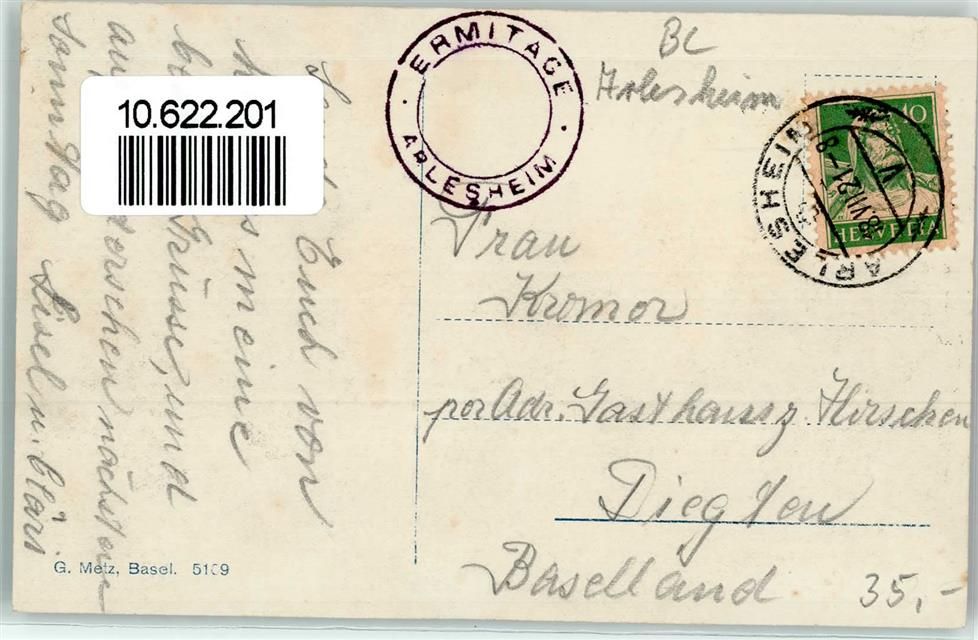 10.622.201
ERMITAGE
ARLESHEIM
BL
Arlesheim
10
HELVETIA
ARLESHEIM
VI 21
Frau
Kromer
per Adr. Gasthaus z. Hirschen
Diegten
Baselland
35.-
Euch von
meine
Grüsse, und
auf nächsten
Sonntag Lisel u. Clari
G. Metz, Basel.